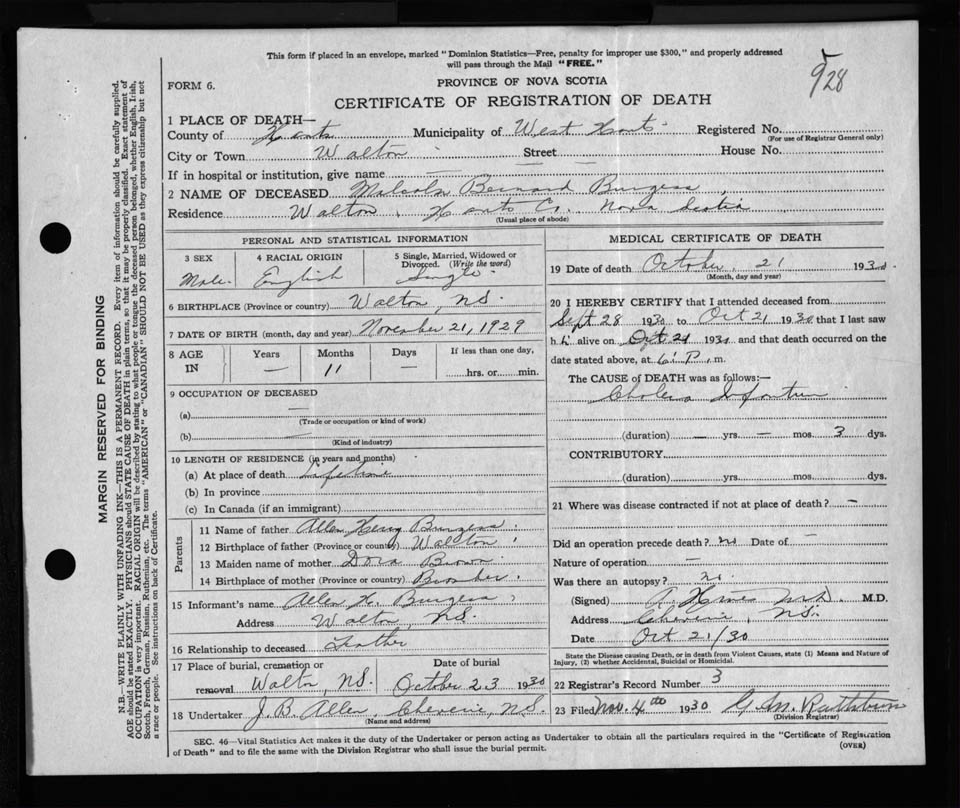 This form if placed in an envelope, marked "Dominion Statistics—Free, penalty for improper use $300," and properly addressed
will pass through the Mail "FREE."
928
FORM 6.
PROVINCE OF NOVA SCOTIA
CERTIFICATE OF REGISTRATION OF DEATH
1 PLACE OF DEATH—
County of Hants Municipality of West Hants Registered No.
(For use of Registrar General only)
City or Town Walton Street — House No.
If in hospital or institution, give name —
2 NAME OF DECEASED Malcolm Bernard Burgess
Residence Walton, Hants Co. Nova Scotia
(Usual place of abode)
PERSONAL AND STATISTICAL INFORMATION
3 SEX 4 RACIAL ORIGIN 5 Single, Married, Widowed or
Divorced. (Write the word)
Male. English Single.
6 BIRTHPLACE (Province or country) Walton, N.S.
7 DATE OF BIRTH (month, day and year) November 21, 1929
8 AGE IN Years Months Days If less than one day,
— 11 — hrs. or min.
9 OCCUPATION OF DECEASED
(a) —
(Trade or occupation or kind of work)
(b) —
(Kind of industry)
10 LENGTH OF RESIDENCE (in years and months)
(a) At place of death Lifetime
(b) In province
(c) In Canada (if an immigrant)
Parents
11 Name of father Allen Henry Burgess
12 Birthplace of father (Province or country) Walton
13 Maiden name of mother Dora Brown
14 Birthplace of mother (Province or country)
15 Informant's name Allen H. Burgess
Address Walton, N.S.
16 Relationship to deceased Father
17 Place of burial, cremation or
removal Walton, N.S.
Date of burial
October 23 1930
18 Undertaker J. B. Allen, Cheverie, N.S.
(Name and address)
MEDICAL CERTIFICATE OF DEATH
19 Date of death October, 21 1930.
(Month, day and year)
20 I HEREBY CERTIFY that I attended deceased from
Sept 28 1930 to Oct 21 1930 that I last saw
h alive on Oct 21 1930 and that death occurred on the
date stated above, at 6 P. m.
The CAUSE OF DEATH was as follows:—
Cholera Infantum
(duration) — yrs. — mos. 3 dys.
CONTRIBUTORY
(duration) yrs. mos. dys.
21 Where was disease contracted if not at place of death? —
Did an operation precede death? no Date of —
Nature of operation —
Was there an autopsy? no.
(Signed) M.D. M.D.
Address Cheverie, N.S.
Date Oct 21/30
State the Disease causing Death, or in death from Violent Causes, state (1) Means and Nature of
Injury, (2) whether Accidental, Suicidal or Homicidal.
22 Registrar's Record Number 3
23 Filed Nov. 4th 1930 G. M. Rathburn
(Division Registrar)
SEC. 46—Vital Statistics Act makes it the duty of the Undertaker or person acting as Undertaker to obtain all the particulars required in the "Certificate of Registration
of Death" and to file the same with the Division Registrar who shall issue the burial permit.
(OVER)
MARGIN RESERVED FOR BINDING
N.B.—WRITE PLAINLY WITH UNFADING INK—THIS IS A PERMANENT RECORD. Every item of information should be carefully supplied.
AGE should be stated EXACTLY. PHYSICIANS should STATE CAUSE OF DEATH in plain terms, so that it may be properly classified. Exact statement of
OCCUPATION is very important. RACIAL ORIGIN will be described by stating to what people or tongue the deceased person belonged, whether English, Irish,
Scotch, French, German, Russian, Ruthenian, etc. The terms "AMERICAN" or "CANADIAN" SHOULD NOT BE USED as they express citizenship but not
a race or people. See instructions on back of Certificate.